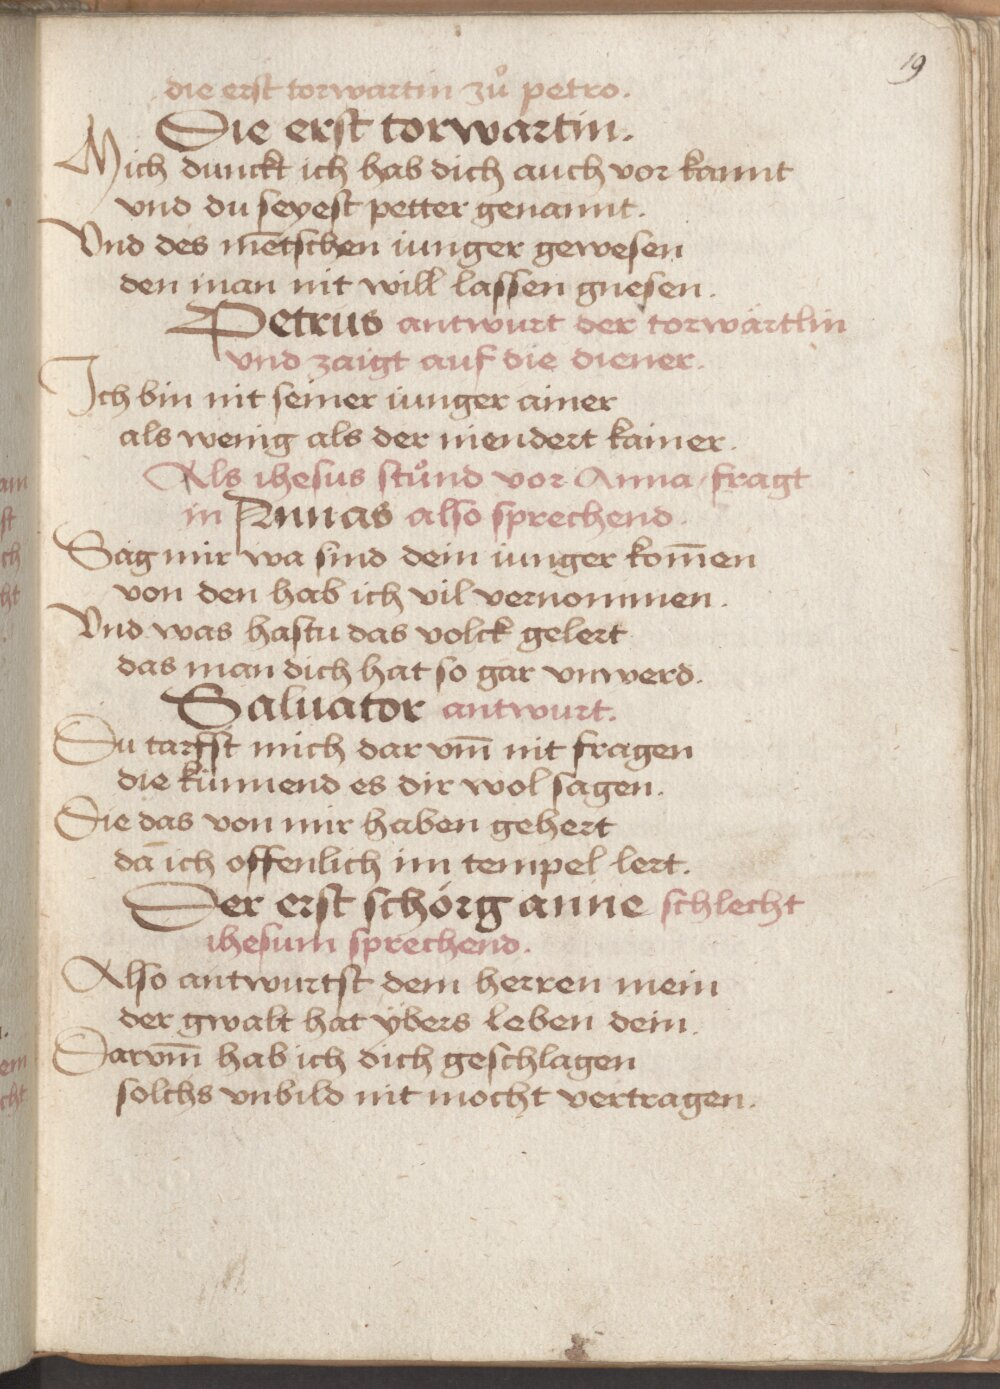 19
die erst torwartin zů petro.
Die erst torwartin.
Mich dunckt ich hab dich auch vor kannt
vnd du seyest petter genannt.
Vnd des mētschen iunger gewesen
den man nit will lassen gnesen.
Petrus antwurt der torwärtlin
vnd zaigt auf die diener.
Ich bin nit seiner iunger ainer
als wenig als der niendert kainer.
Als ihesus stůnd vor Anna / fragt
in Annas also sprechend.
Sag mir wa sind dein iunger kom̄en
von den hab ich vil vernommen.
Vnd was hastu das volck gelert
das man dich hat so gar vnwerd.
Saluator antwurt.
Du tarfst mich dar vm̄ nit fragen
die künnend es dir wol sagen.
Die das von mir haben gehert
da ich offenlich im tempel lert.
Der erst schörg anne schlecht
ihesum sprechend.
Also antwurtst dem herren mein
der gwalt hat ÿbers leben dein.
Darvm̄ hab ich dich geschlagen
solchs vnbild nit mocht vertragen.